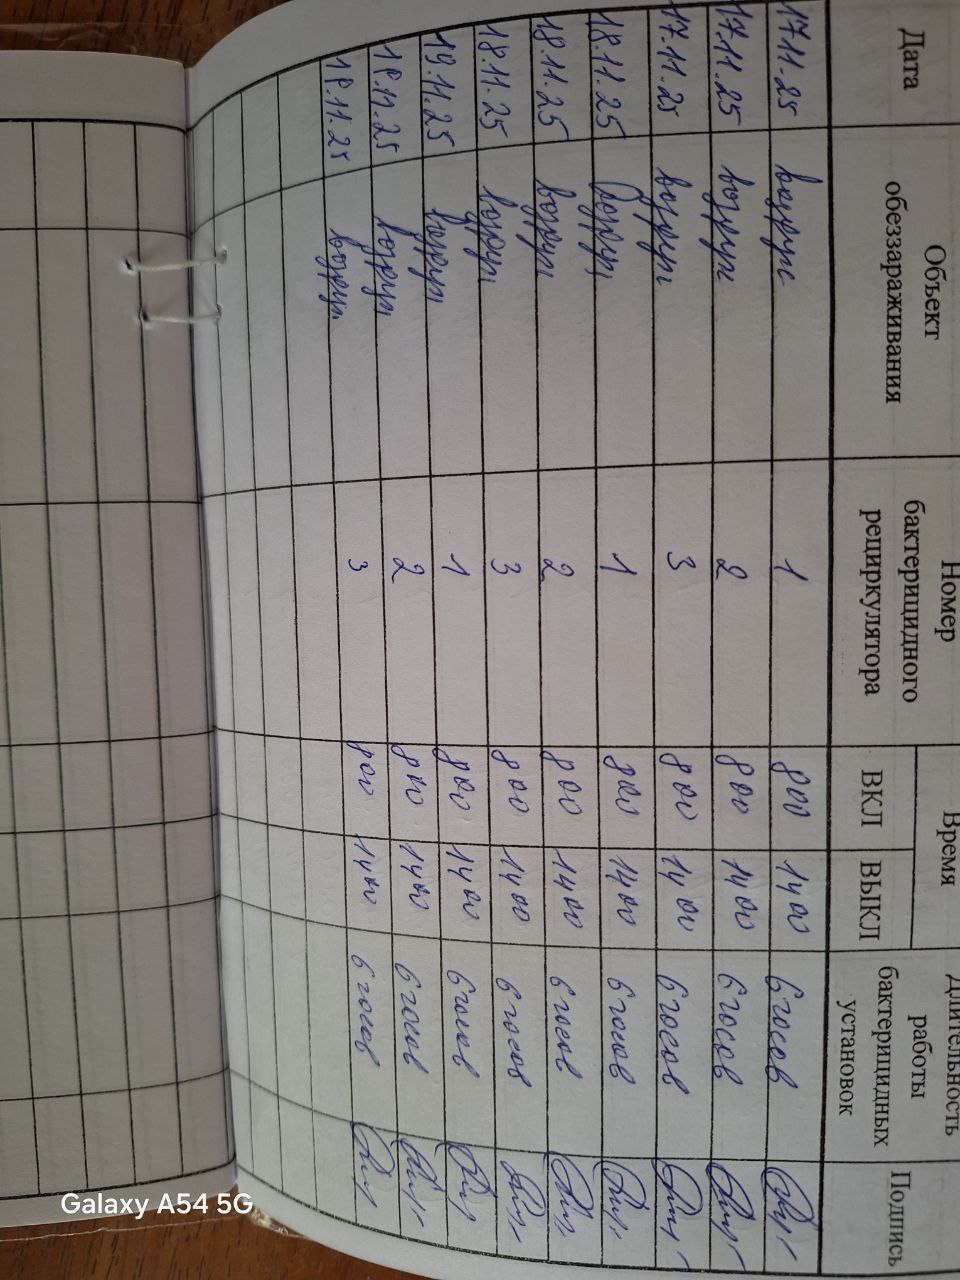 Дата Объект обеззараживания Номер бактерицидного рециркулятора Время ВКЛ ВЫКЛ Длительность работы бактерицидных установок Подпись
17.11.25 воздух 1 800 1400 6 часов
17.11.25 воздух 2 800 1400 6 часов
17.11.25 воздух 3 800 1400 6 часов
18.11.25 воздух 1 800 1400 6 часов
18.11.25 воздух 2 800 1400 6 часов
18.11.25 воздух 3 800 1400 6 часов
19.11.25 воздух 1 800 1400 6 часов
19.11.25 воздух 2 800 1400 6 часов
19.11.25 воздух 3 800 1400 6 часов
Galaxy A54 5G